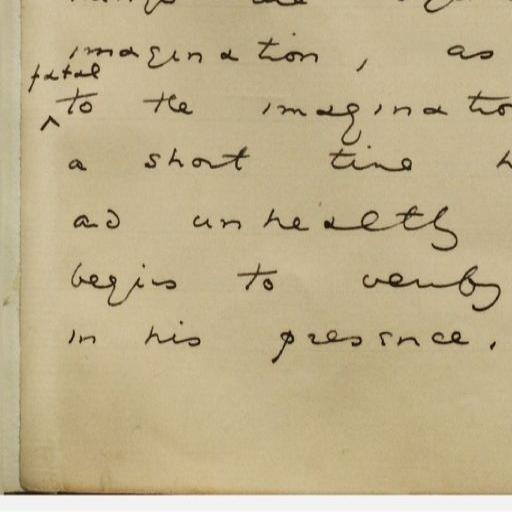 imagination, as
fatal
^ to the imaginatio
a short time h
and unhealthy
begins to verify
in his presence.